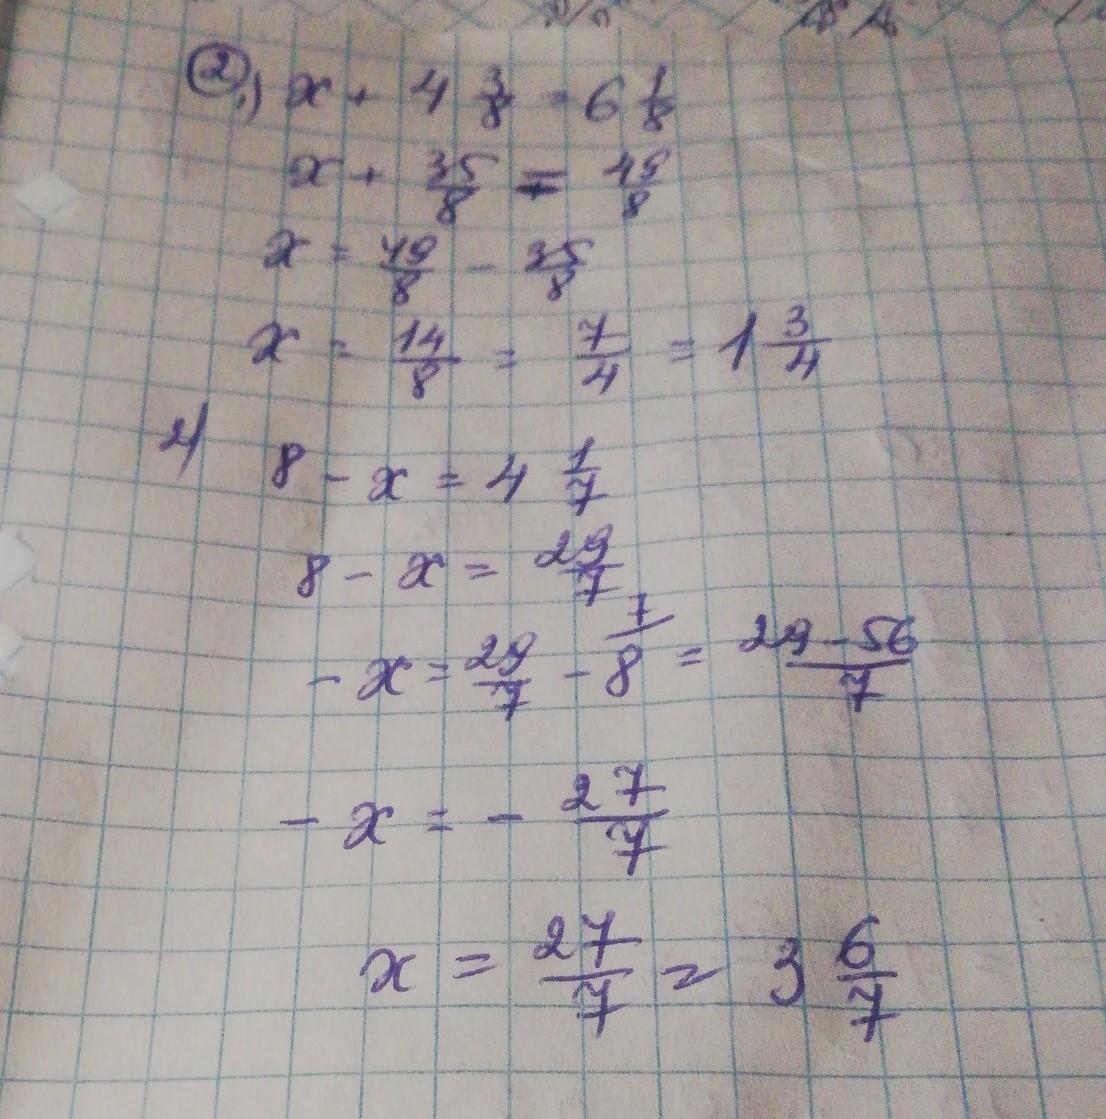 ②1) x + 4 3/8 = 6 1/8
x + 35/8 = 49/8
x = 49/8 - 35/8
x = 14/8 = 7/4 = 1 3/4
2) 8 - x = 4 1/7
8 - x = 29/7
- x = 29/7 - 8 7/ = 29-56/7
- x = - 27/7
x = 27/7 = 3 6/7